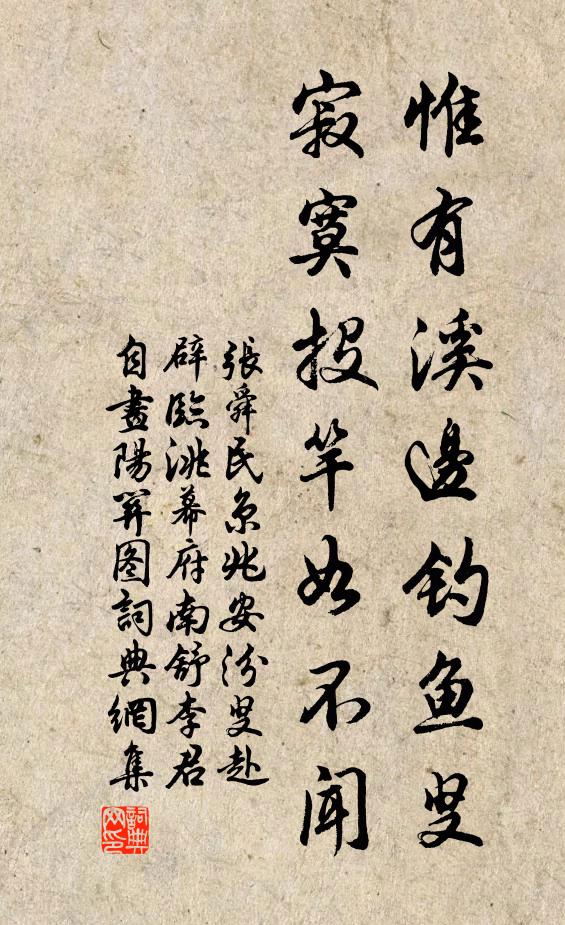 惟有溪邊钓鱼叟
寂寞投竿如不闻
張舜民京兆安汾叟赴
辟臨洮幕府南舒李君
自畫陽關图詞典網集
詞典网印